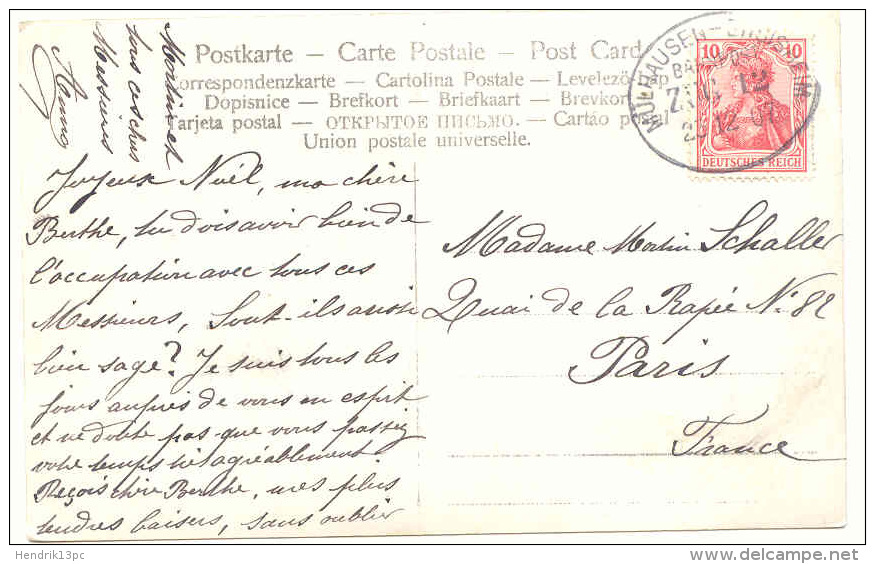 Postkarte – Carte Postale – Post Card
Correspondenzkarte – Cartolina Postale – Levelező-lap
Dopisnice – Brefkort – Briefkaart – Brevkort
Tarjeta postal – ОТКРЫТОЕ ПИСЬМО. – Cartão postal
Union postale universelle.
10 10
DEUTSCHES REICH
MÜLHAUSEN
ZUG 12
12 07
Joyeux Noël, ma chère
Berthe, tu dois avoir bien de
l'occupation avec tous ces
Messieurs, Sont-ils aussi
bien sage? Je suis tous les
jours auprès de vous en esprit
et ne doute pas que vous passiez
votre temps très agréablement.
Reçois chère Berthe, mes plus
tendres baisers, sans oublier
Martin et
tous ces chers
Messieurs
Madame Martin Schaller
Quai de la Rapée No 82
Paris
France
Hendrik13pc
delcampe.net